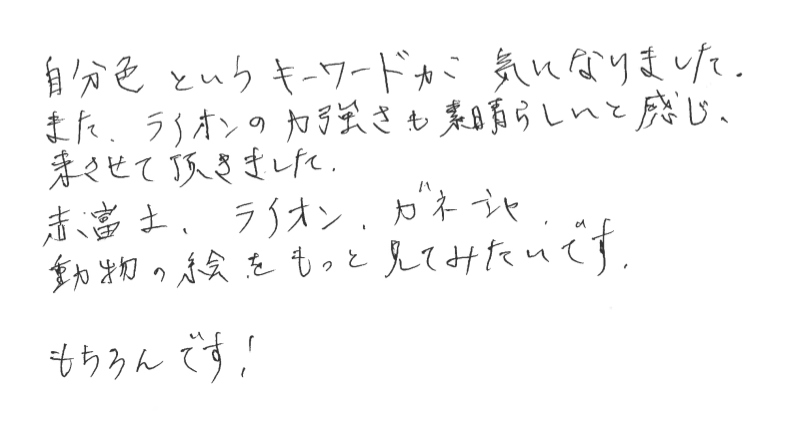 自分色というキーワードが気になりました。
また、ライオンの力強さも素晴らしいと感じ、
来させて頂きました。
赤富士、ライオン、ガネーシャ、
動物の絵をもっと見てみたいです。
もちろんです!